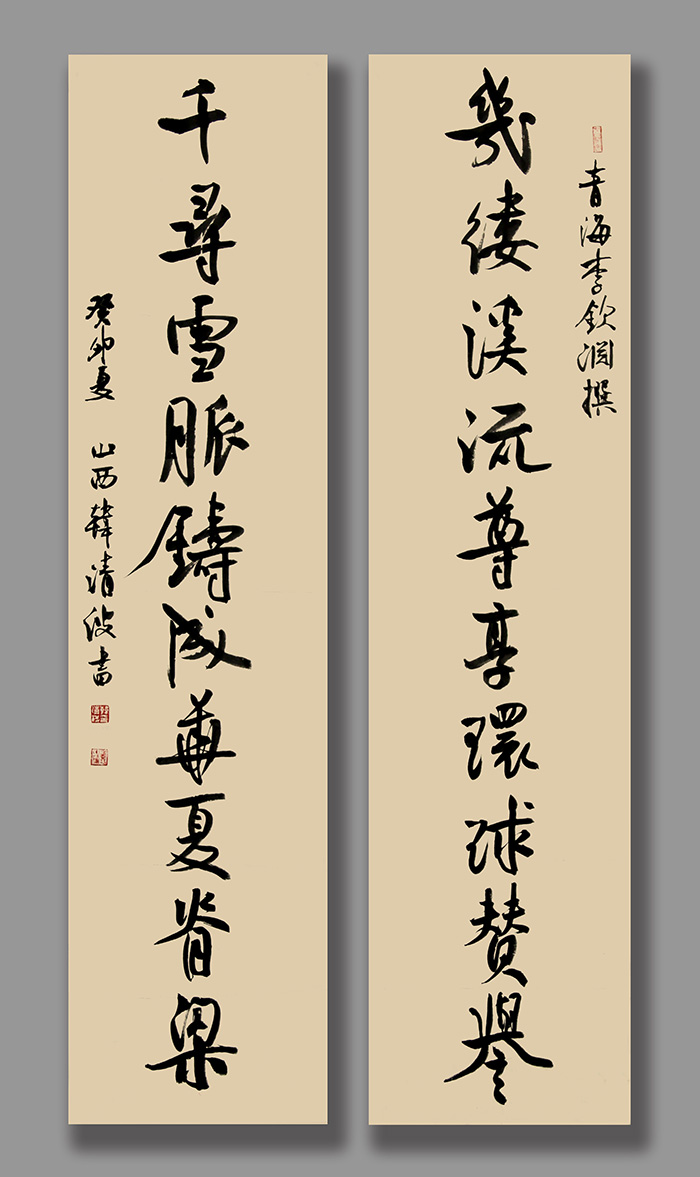 青海李钦润撰
幾缕溪流尊享環球赞譽
千尋雪脈鑄成華夏脊梁
癸卯夏 山西韓清波書